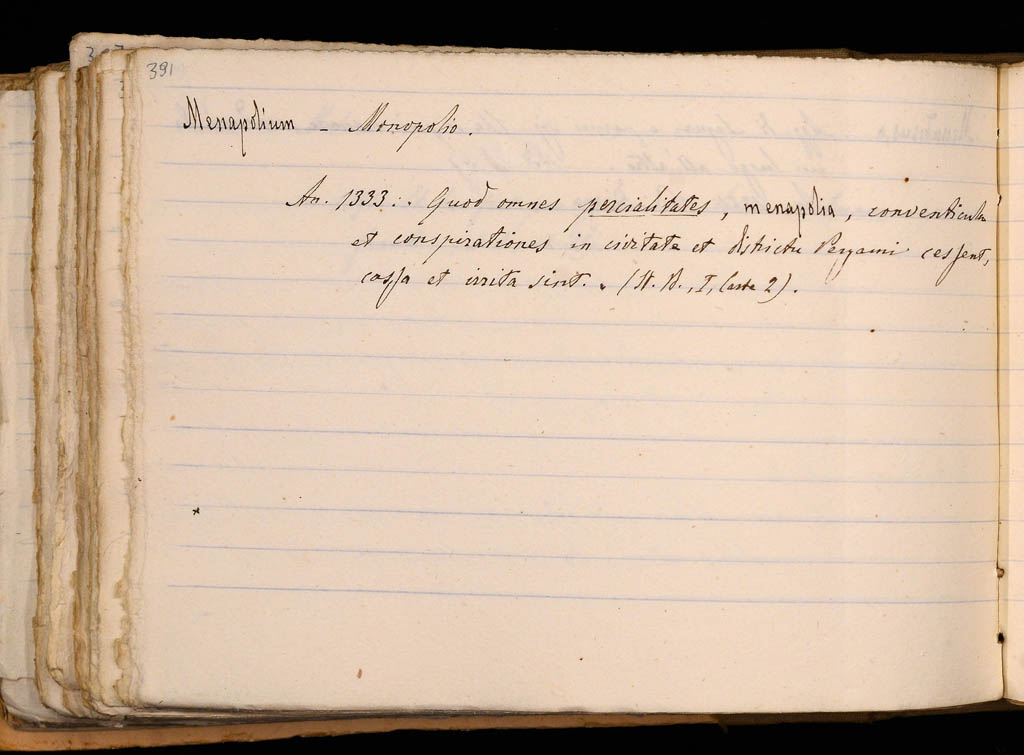 391
Menapolium - Monopolio.
An. 1333: "Quod omnes percialitates, menapolia, conventicula
et conspirationes in civitate et districtu Pergami cessent,
cassa et irrita sint." (St. B., I, Carta 2).